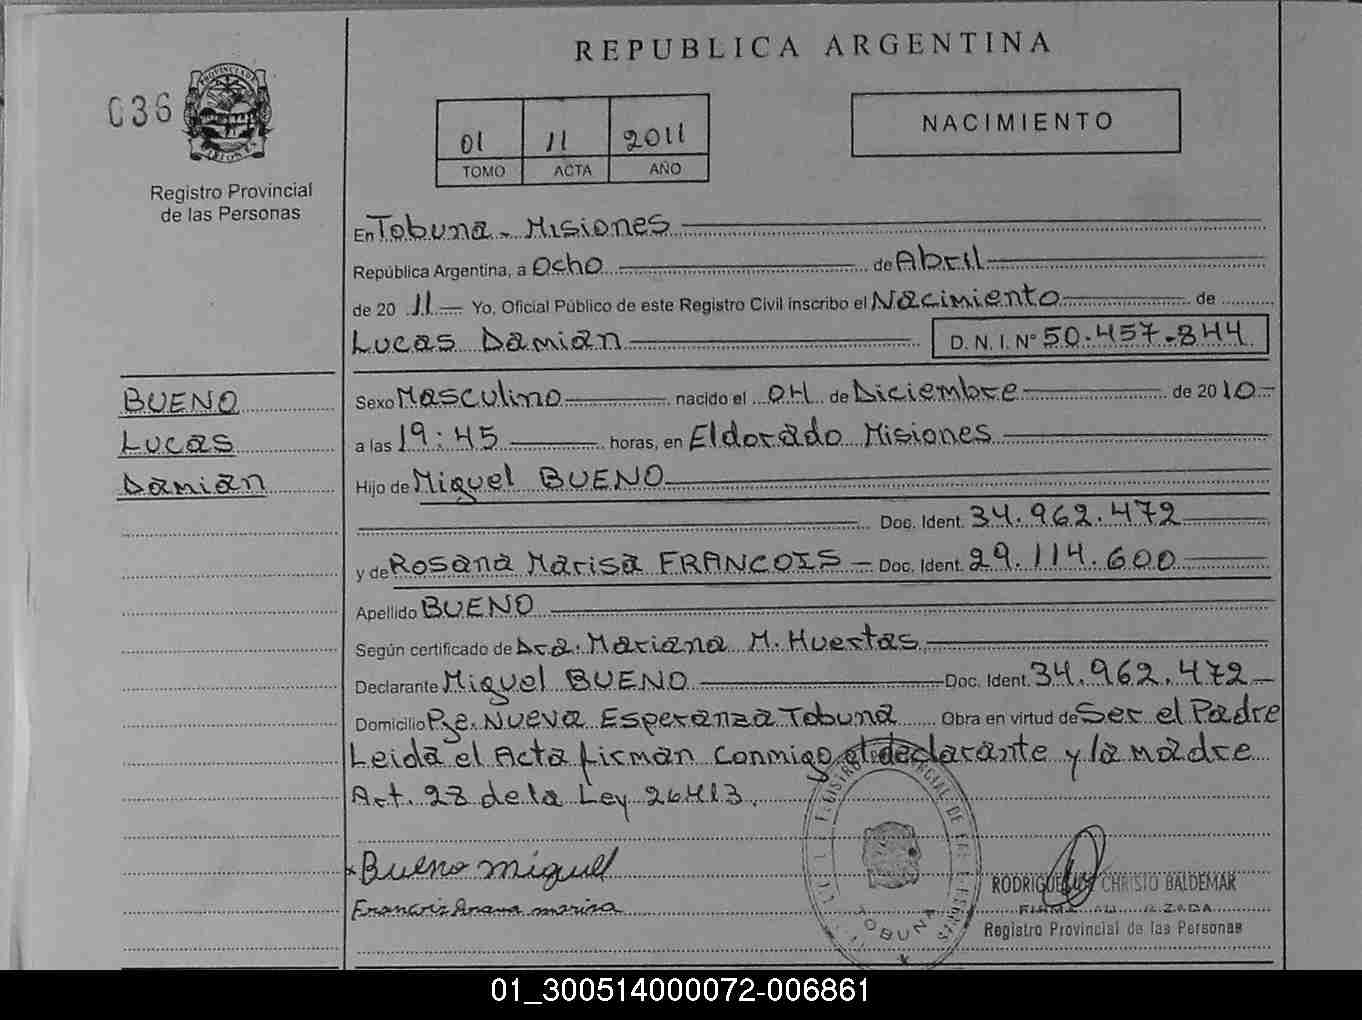 REPUBLICA ARGENTINA
036
01 11 2011
TOMO ACTA AÑO
NACIMIENTO
Registro Provincial
de las Personas
En Tobuna - Misiones
República Argentina, a Ocho de Abril
de 20 11 Yo, Oficial Público de este Registro Civil inscribo el Nacimiento de
Lucas Damián D. N. I. Nº 50.457.844
BUENO
Lucas
Damián
Sexo Masculino nacido el 04 de Diciembre de 2010
a las 19:45 horas, en Eldorado Misiones
Hijo de Miguel BUENO
Doc. Ident. 34.962.472
y de Rosana Marisa FRANCOIS Doc. Ident. 29.114.600
Apellido BUENO
Según certificado de Dra. Mariana M. Huertas
Declarante Miguel BUENO Doc. Ident. 34.962.472
Domicilio Pje. Nueva Esperanza Tobuna Obra en virtud de Ser el Padre
Leida el Acta firman conmigo el declarante y la madre
Art. 28 de la Ley 26413
Bueno miguel
marisa
TOBUNA
CHRISTO BALDEMAR
Registro Provincial de las Personas
01_300514000072-006861